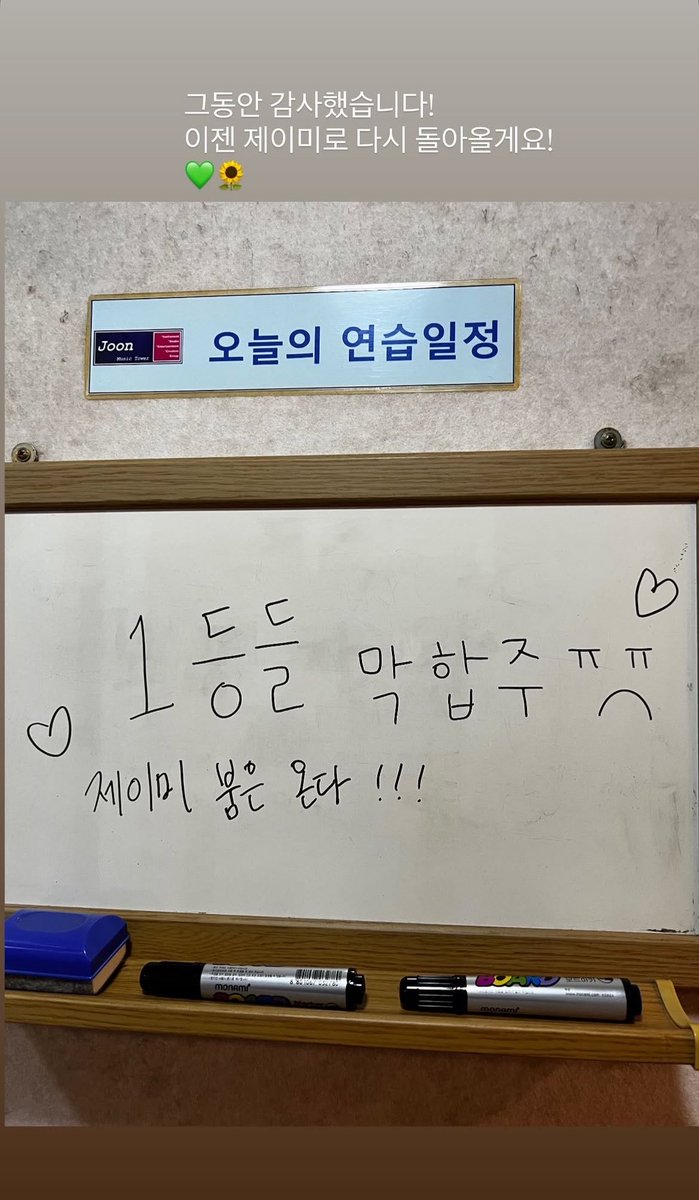 그동안 감사했습니다!
이젠 제이미로 다시 돌아올게요!
💚🌻
Joon
Music Tower
오늘의 연습일정
1등들 막합주 ㅠㅠ
제이미 붐은 온다 !!!
monami
BOARD
Marker
BOARD
보드마카
monami